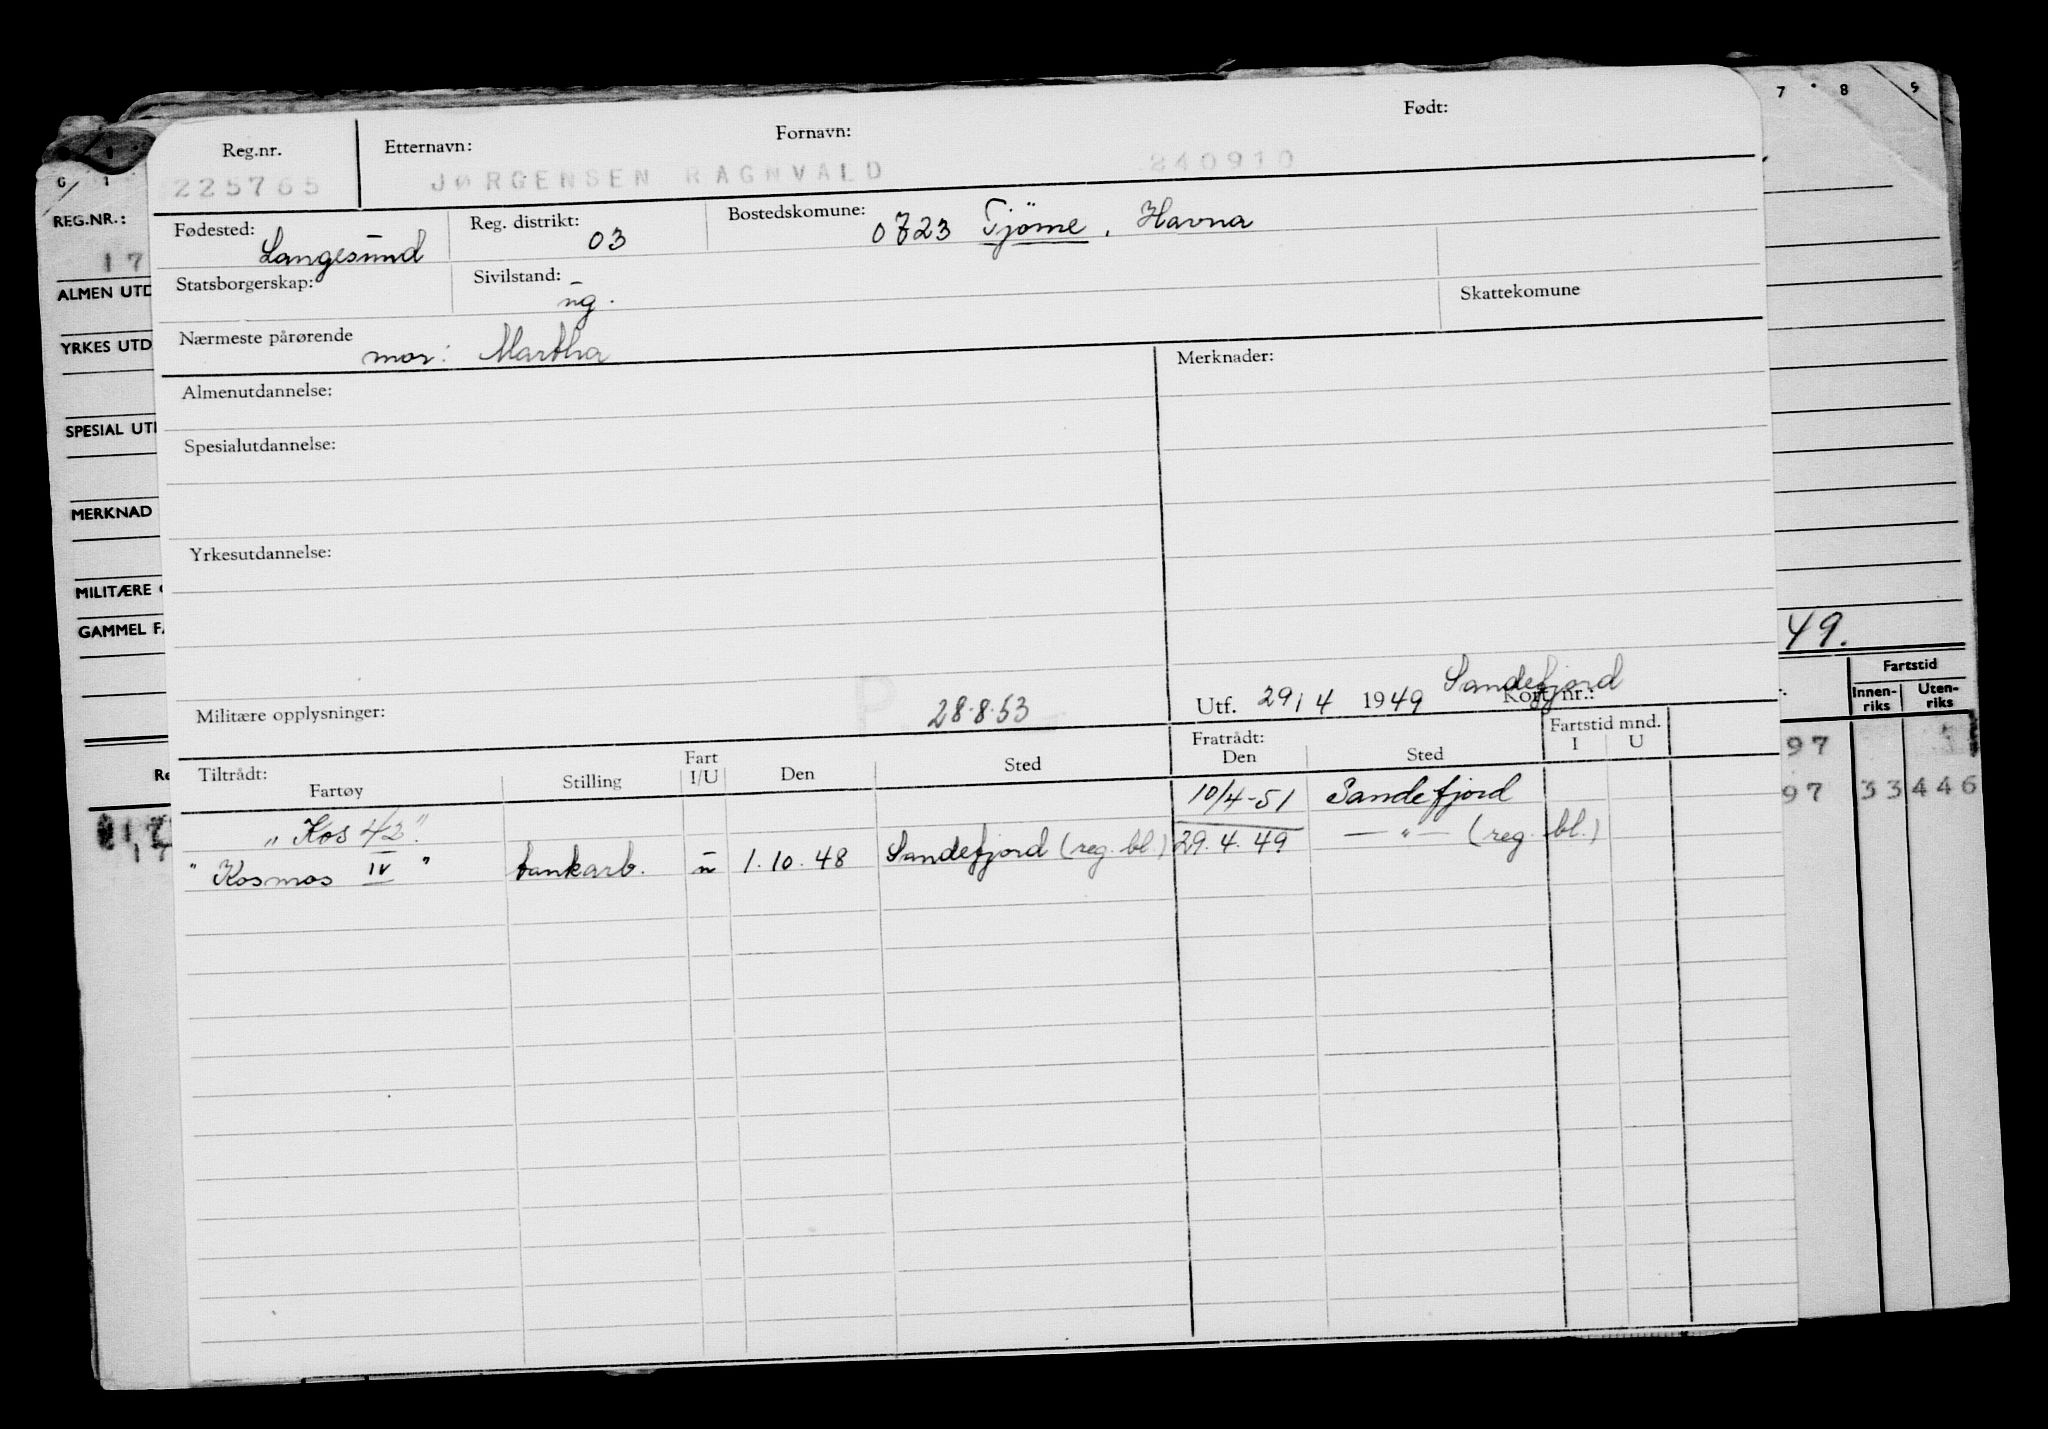 7 8 9
Reg.nr. Etternavn: Fornavn: Født:
225765 JØRGENSEN RAGNVALD 240910
0 1
REG.NR.:
Fødested: Langesund Reg. distrikt: 03 Bostedskomune: 0723 Tjöme, Havna
17
Statsborgerskap: Sivilstand: ug. Skattekomune
ALMEN UTD
Nærmeste pårørende mor: Martha
YRKES UTD
Almenutdannelse: Merknader:
SPESIAL UT
Spesialutdannelse:
MERKNAD
Yrkesutdannelse:
MILITÆRE
GAMMEL FA
49.
Militære opplysninger: 28.8.53 Utf. 29/4 1949 Sandefjord Kort nr.:
Fartstid
Innenriks Utenriks
Tiltrådt: Fratrådt: Fartstid mnd.
Fartøy Stilling Fart I/U Den Sted Den Sted I U
97
Re
„Kos 42" 10/4-51 Sandefjord
97 33 446
17
"Kosmos IV" tankarb. u 1.10.48 Sandefjord (reg. bl.) 29.4.49 —"— (reg. bl.)